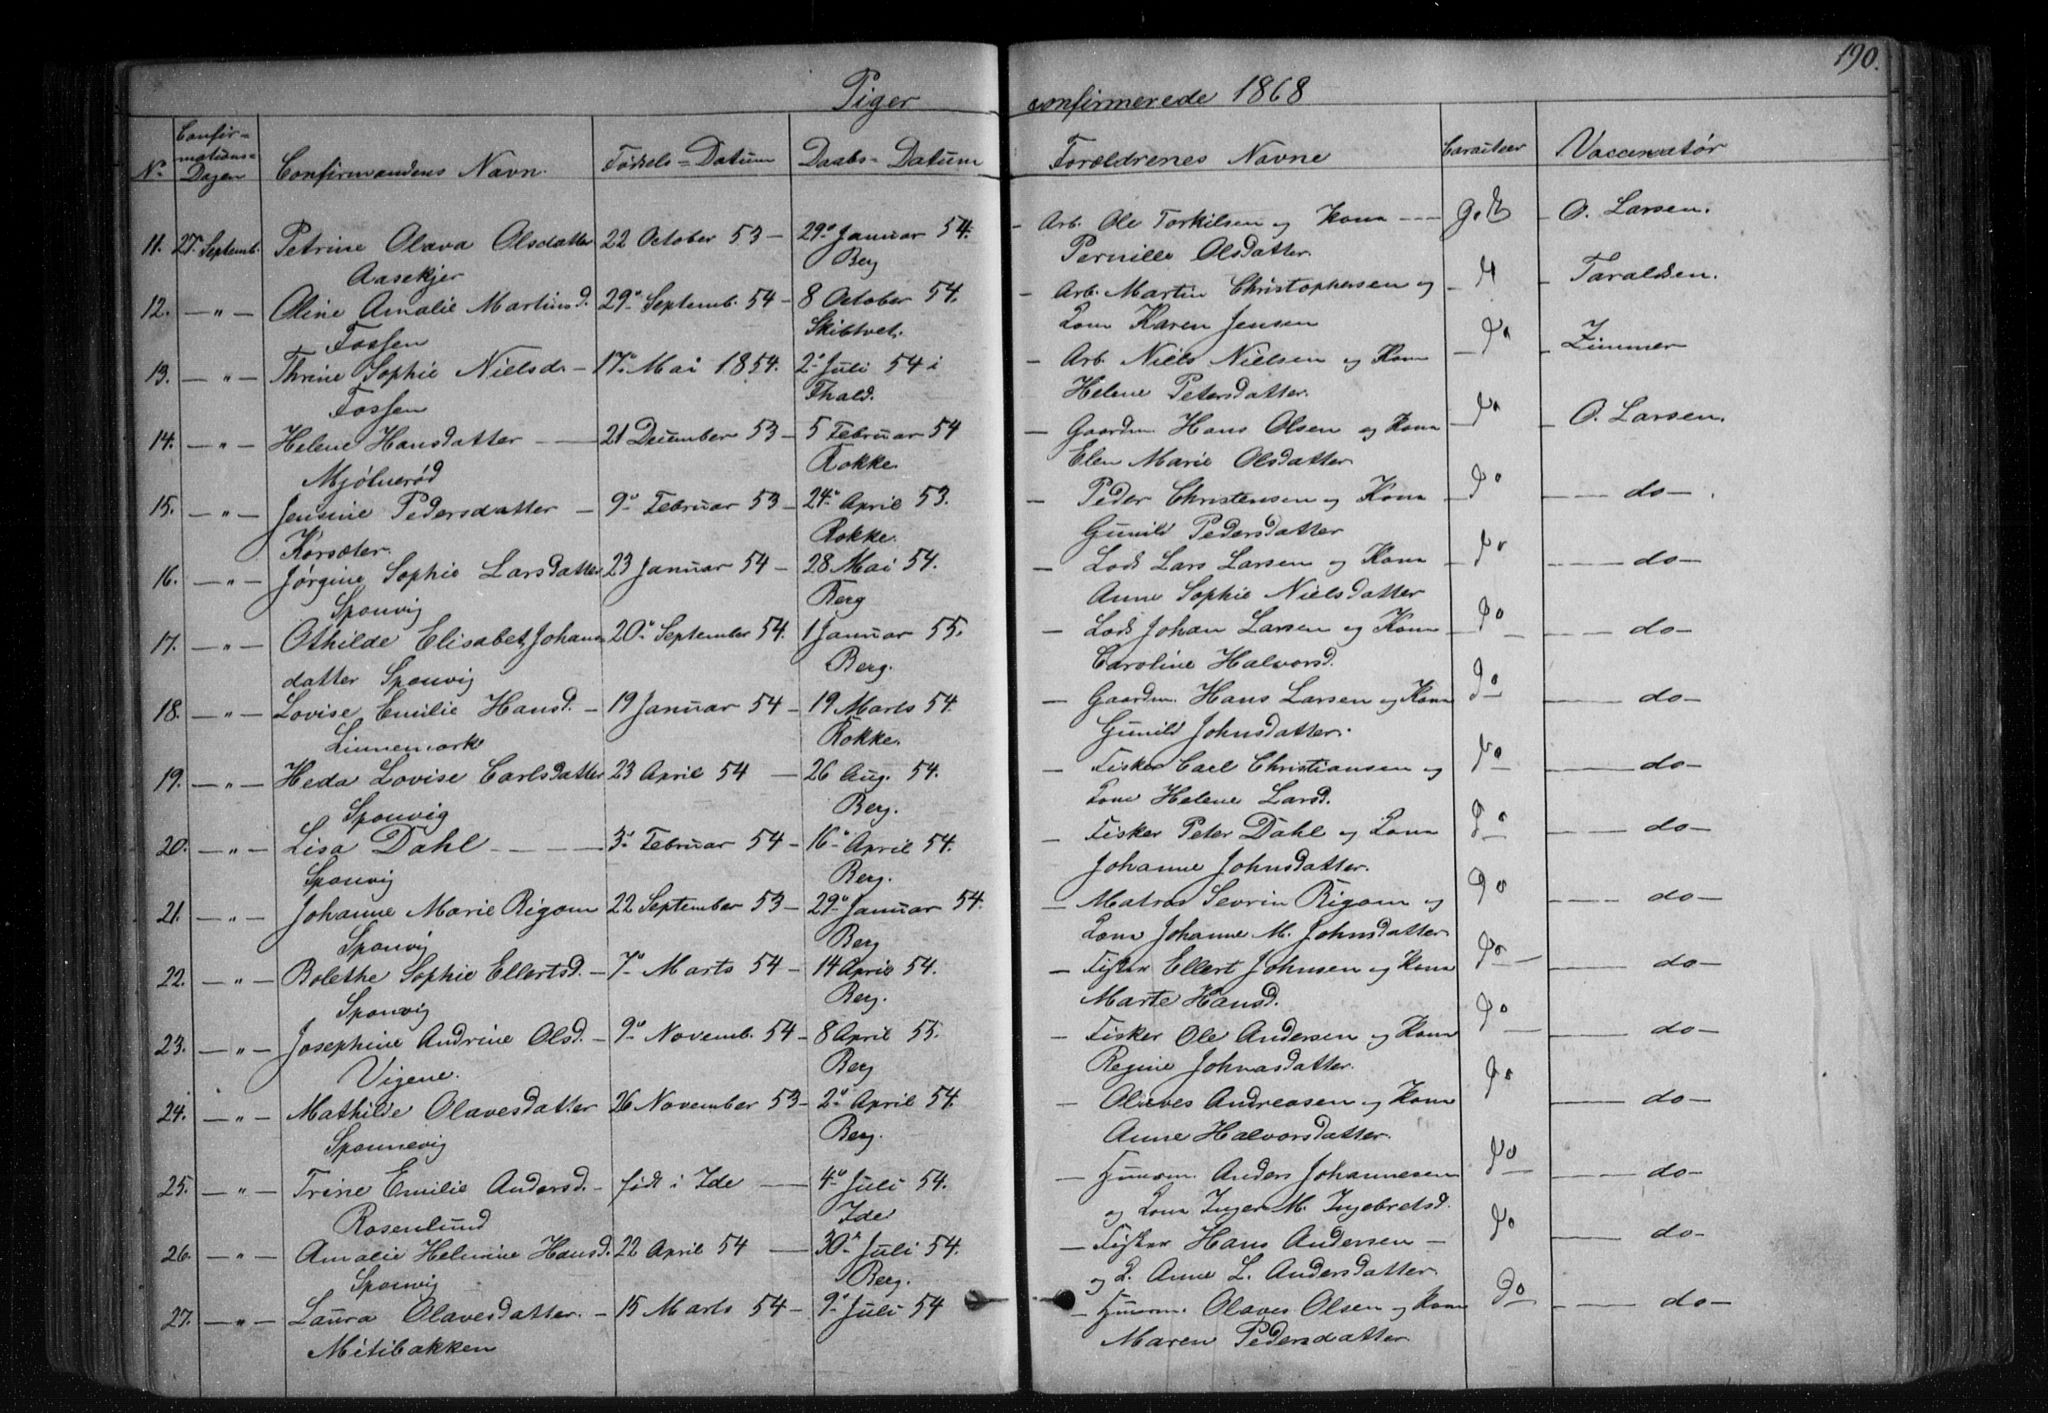 190.
Piger confirmerede 1868
No Confirmations-Dagen Confirmandens Navn. Fødsels-Datum Daabs-Datum Forældrenes Navne Caracteer Vaccinatør
11. 27. Septemb. Petrine Olava Olsdatter 22 October 53 — 29. Januar 54. — Arb. Ole Torkilsen og Kona — O. Larsen.
Aasekjer Berg Pernille Olsdatter.
12. — " — Oline Amalie Martinsd. 29. Septemb. 54 — 8 October 54. — Arb. Martin Christophersen og — Taraldsen.
Fossen Skibtvet. Kona Karen Jensen
13. — " — Thrine Sophie Nielsd. — 17. Mai 1854. 2. Juli 54 i — Arb. Niels Nielsen og Kona — do — Zimmer
Fossen Thald. Helene Petersdatter.
14. — " — Helene Hansdatter — 21 December 53 — 5 Februar 54 — Gaardm. Hans Olsen og Kona — do — O. Larsen.
Mjølnerød Rokke. Elen Marie Olsdatter
15. — " — Jensine Pedersdatter — 9. Februar 53 — 24. April 53. — Peder Christensen og Kona — do — do — .
Korsæter. Rokke. Gunild Pedersdatter
16. — " — Jørgine Sophie Larsdatter 23 Januar 54 — 28 Mai 54. — Lods Lars Larsen og Kona — do — do —
Sponvig Berg Anne Sophie Nielsdatter
17. — " — Othilde Elisabet Johans 20. September 54. 1 Januar 55. — Lods Johan Larsen og Kona — do — do —
datter Sponvig Berg. Caroline Halvorsd.
18. — " — Lovise Emilie Hansd. — 19 Januar 54 — 19 Marts 54. — Gaardm. Hans Larsen og Kona do — do —
Linnemark Rokke. Gunild Johnsdatter.
19. — " — Heda Lovise Carlsdatter 23 April 54 — 26 Aug. 54. — Fisker Carl Christiansen og do — do —
Sponvig Berg. Kone Helene Larsd.
20. — " — Lisa Dahl — 3. Februar 54 — 16. April 54. — Fisker Peter Dahl og Kona do — do —
Sponvig Berg. Johanne Johnsdatter.
21. — " — Johanne Marie Rigom 22 September 53 — 29. Januar 54. — Matros Sevrin Rigom og do — do —
Sponvig Berg Kona Johanne M. Johnsdatter
22. — " — Bolethe Sophie Ellertsd. — 7. Marts 54 — 14 April 54. — Fisker Ellert Johnsen og Kona do — do —
Sponvig Berg. Marte Hansd.
23. — " — Josephine Andrine Olsd. — 9. Novemb. 54 — 8 April 55. — Fisker Ole Andersen og Kona do — do —
Vigene. Berg Regine Johnasdatter.
24. — " — Mathilde Olavesdatter 26 November 53 — 2. April 54. — Olaves Andreasen og Kona do — do —
Sponnevig Berg. Anne Halvorsdatter.
25. — " — Trine Emilie Andersd. — født i Ide — 4. Juli 54. — Huusm. Anders Johannesen do — do —
Rosenlund Ide og Kona Inger M. Ingebretsd.
26. — " — Amalie Helmine Hansd. 22 April 54 — 30. Juli 54. — Fisker Hans Andersen — do — do —
Sponvig Berg. og K. Anne L. Andersdatter
27. — " — Laura Olavesdatter. — 15 Marts 54 — 9. Juli 54 — Huusm. Olaves Olsen og Kona do — do —
Mitibakken Maren Pedersdatter